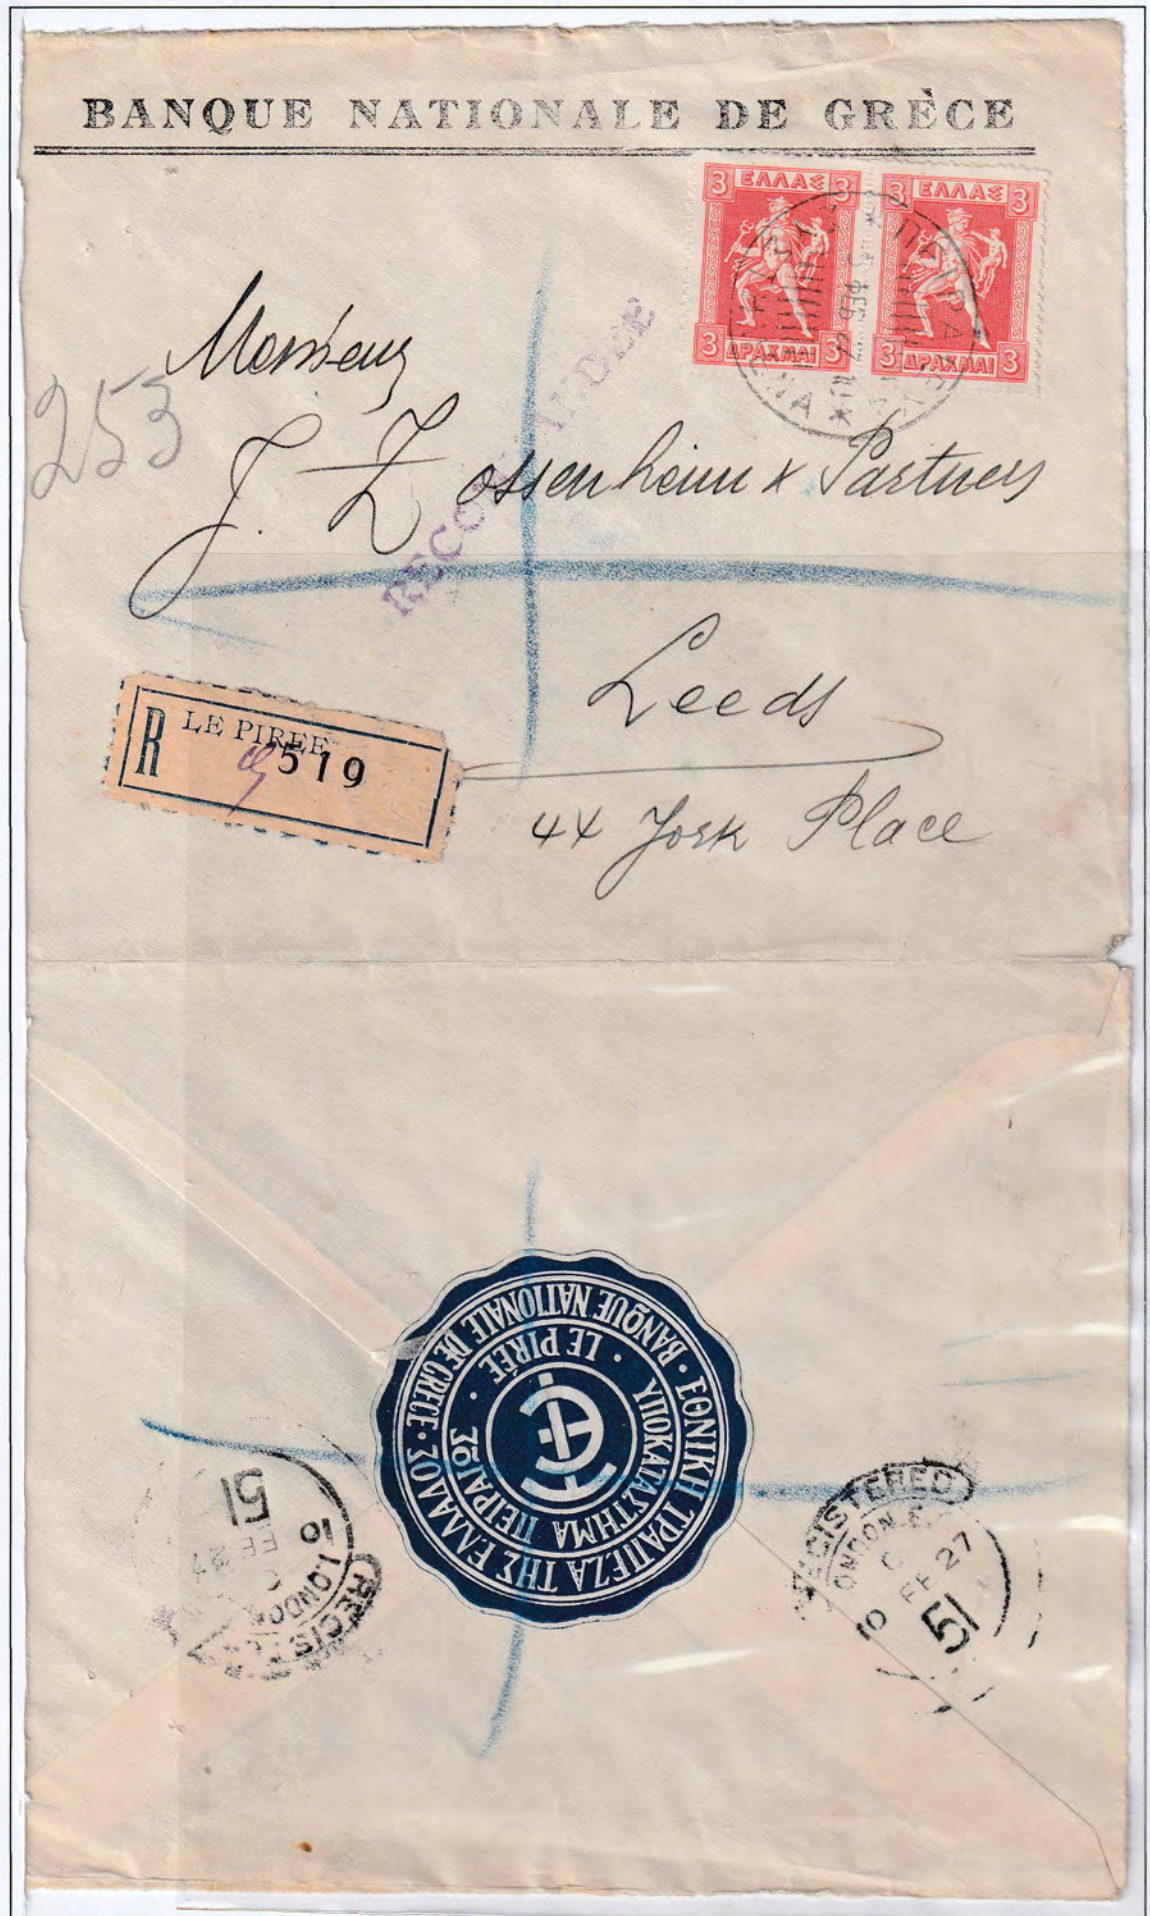 BANQUE NATIONALE DE GRÈCE
3 ΕΛΛΑΣ 3
3 ΔΡΑΧΜΑΙ 3
3 ΕΛΛΑΣ 3
3 ΔΡΑΧΜΑΙ 3
ΠΕΙΡΑΙΕΥΣ
ΦΕΒ
Monsieur
253
J. Zossenheim & Partners
RECOMMANDEE
Leeds
R LE PIREE
519
44 York Place
ΕΘΝΙΚΗ ΤΡΑΠΕΖΑ ΤΗΣ ΕΛΛΑΔΟΣ · BANQUE NATIONALE DE GRECE ·
ΥΠΟΚΑΤΑΣΤΗΜΑ ΠΕΙΡΑΙΩΣ · LE PIRÉE ·
REGISTERED
LONDON
10 FE 27
51
REGISTERED
LONDON E.
10 FE 27
51